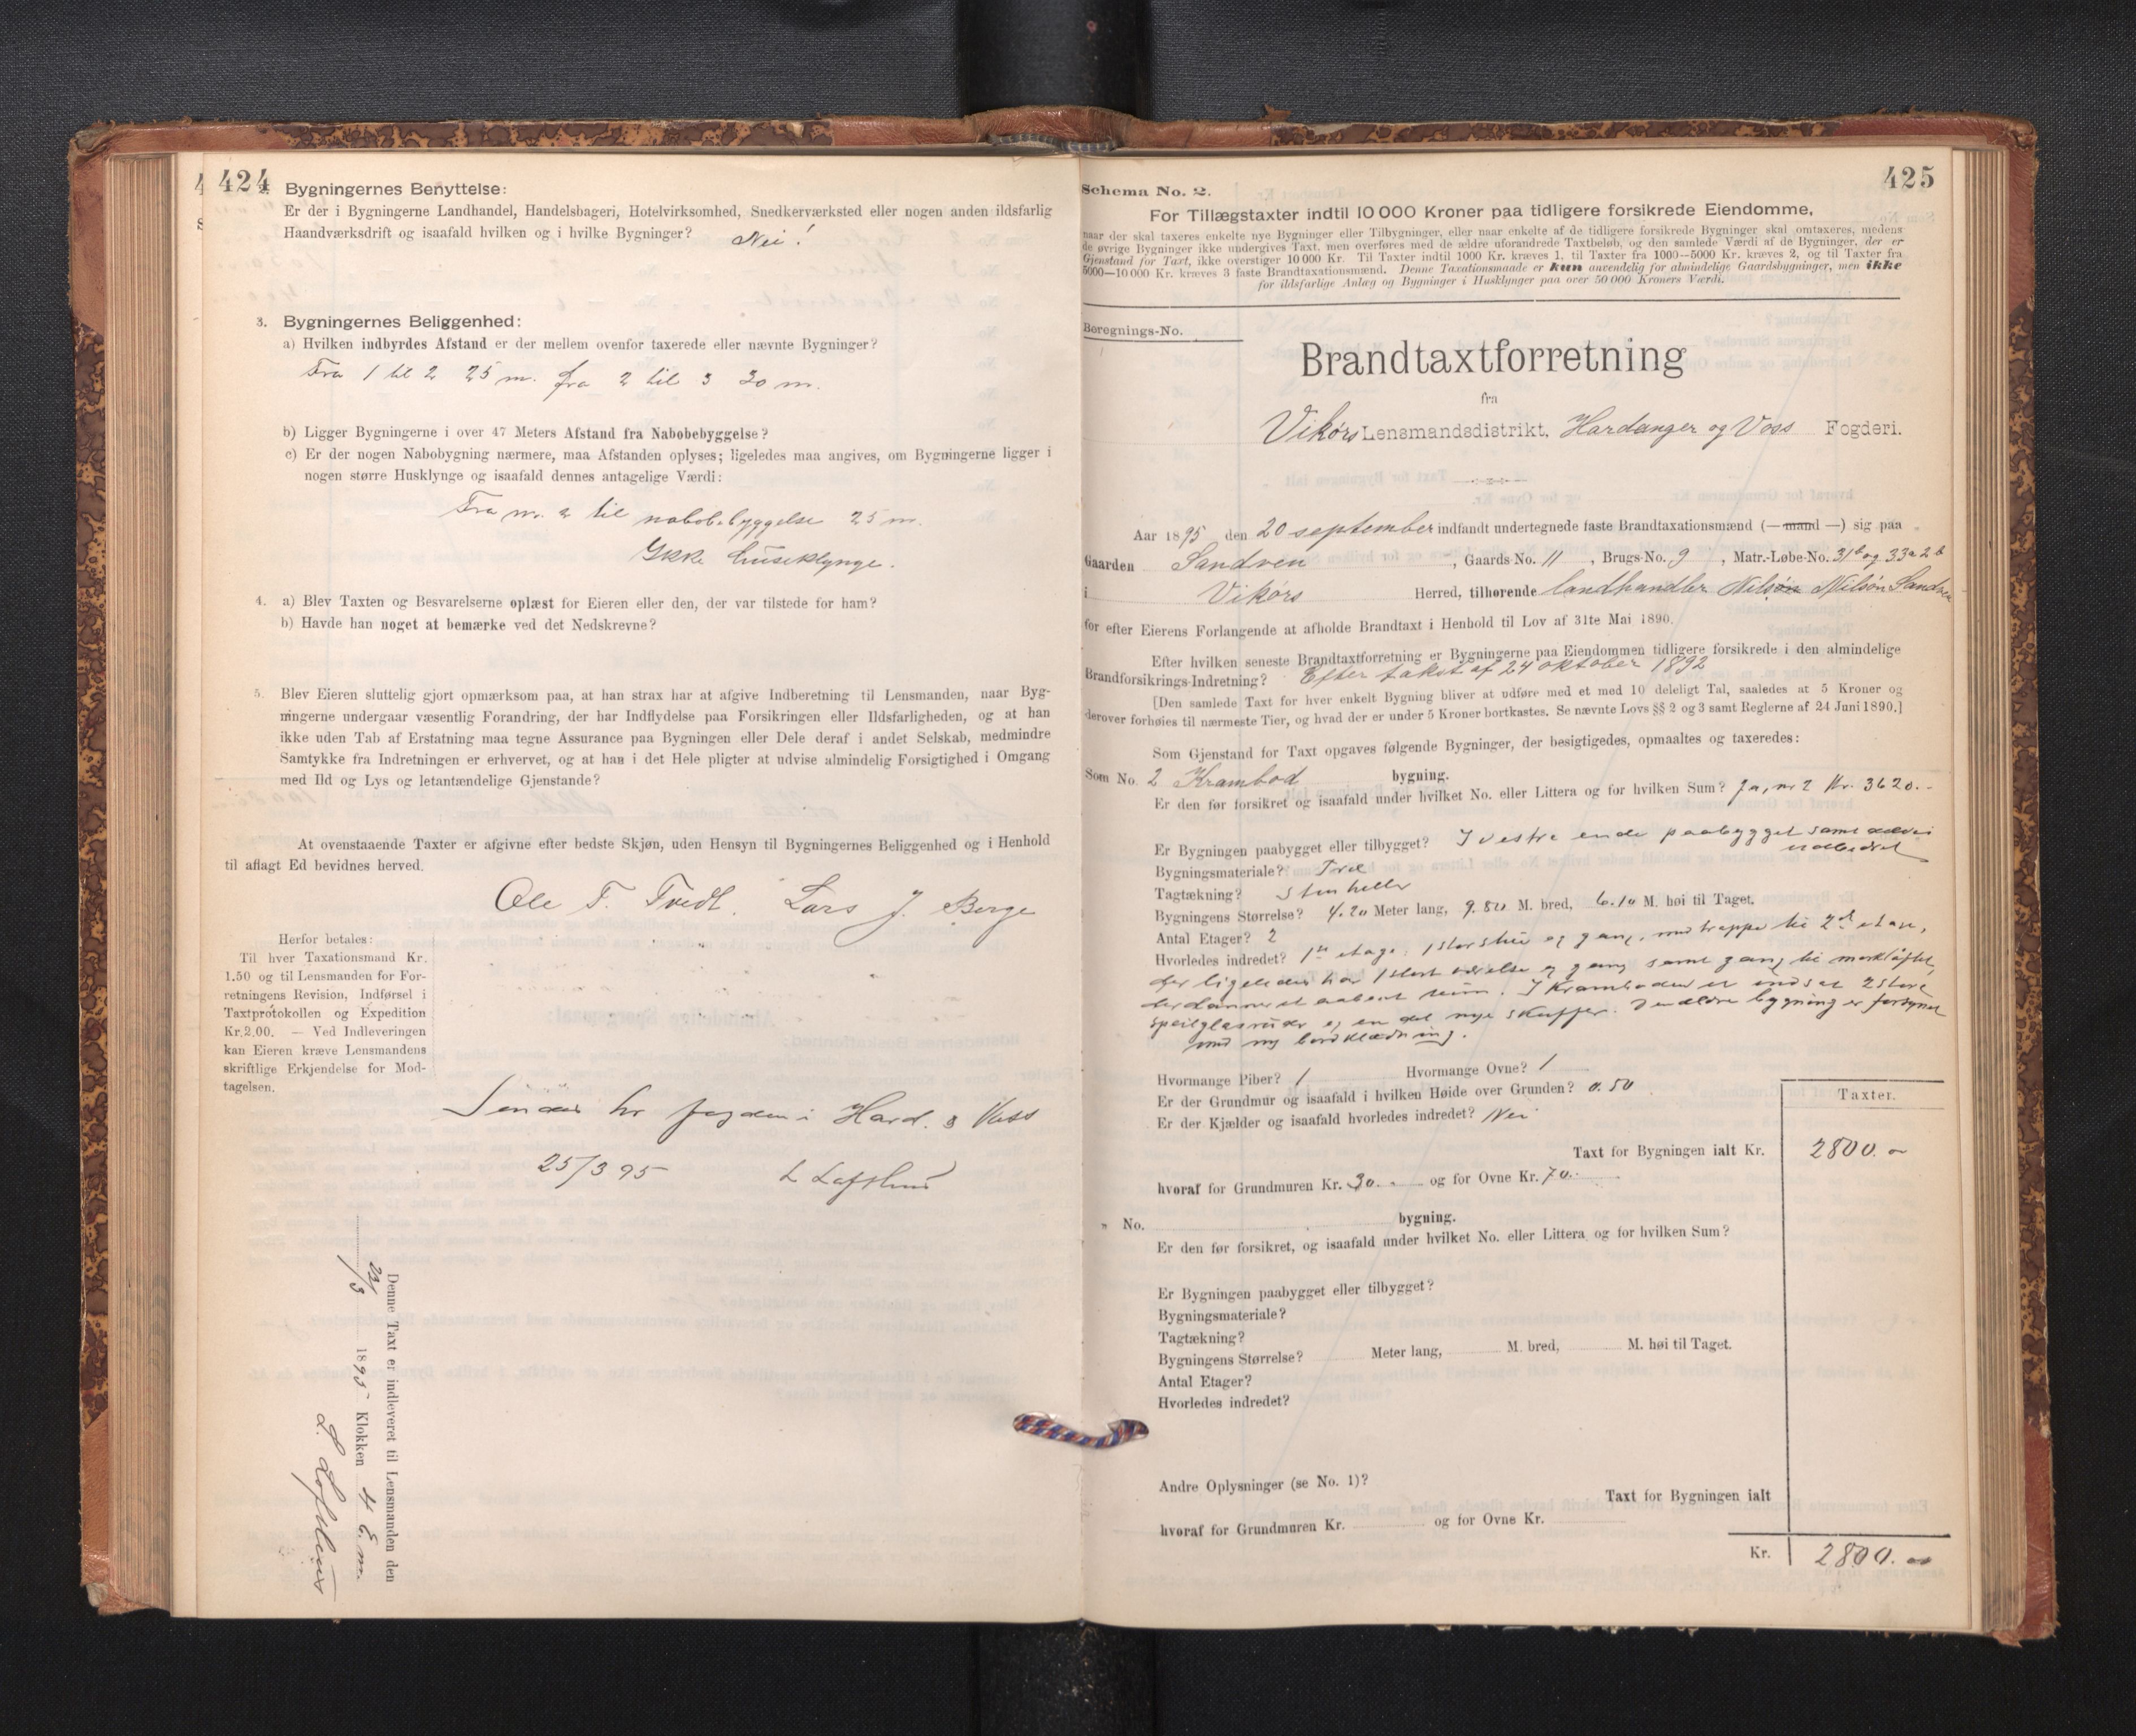 424
Bygningernes Benyttelse:
Er der i Bygningerne Landhandel, Handelsbageri, Hotelvirksomhed, Snedkerværksted eller nogen anden ildsfarlig
Haandværksdrift og isaafald hvilken og i hvilke Bygninger? Nei!
3. Bygningernes Beliggenhed:
a) Hvilken indbyrdes Afstand er der mellem ovenfor taxerede eller nævnte Bygninger?
Fra 1 til 2 25 m. fra 2 til 3 30 m.
b) Ligger Bygningerne i over 47 Meters Afstand fra Nabobebyggelse?
c) Er der nogen Nabobygning nærmere, maa Afstanden oplyses; ligeledes maa angives, om Bygningerne ligger i
nogen større Husklynge og isaafald dennes antagelige Værdi:
Fra nr. 2 til nabobebyggelse 25 m.
Ikke huseklynge.
4. a) Blev Taxten og Besvarelserne oplæst for Eieren eller den, der var tilstede for ham?
b) Havde han noget at bemærke ved det Nedskrevne?
5. Blev Eieren sluttelig gjort opmærksom paa, at han strax har at afgive Indberetning til Lensmanden, naar Byg-
ningerne undergaar væsentlig Forandring, der har Indflydelse paa Forsikringen eller Ildsfarligheden, og at han
ikke uden Tab af Erstatning maa tegne Assurance paa Bygningen eller Dele deraf i andet Selskab, medmindre
Samtykke fra Indretningen er erhvervet, og at han i det Hele pligter at udvise almindelig Forsigtighed i Omgang
med Ild og Lys og letantændelige Gjenstande?
At ovenstaaende Taxter er afgivne efter bedste Skjøn, uden Hensyn til Bygningernes Beliggenhed og i Henhold
til aflagt Ed bevidnes herved.
Ole T. Tvedt. Lars J. Berge
Herfor betales:
Til hver Taxationsmand Kr.
1.50 og til Lensmanden for For-
retningens Revision, Indførsel i
Taxtprotokollen og Expedition
Kr.2.00. — Ved Indleveringen
kan Eieren kræve Lensmandens
skriftlige Erkjendelse for Mod-
tagelsen.
Sendes hr fogden i Hard. & Voss
25/3 95 L Lofthus
Denne Taxt er indleveret til Lensmanden den
23/3 1895 Klokken 4 E.m.
L. Lofthus
425
Schema No. 2.
For Tillægstaxter indtil 10 000 Kroner paa tidligere forsikrede Eiendomme,
naar der skal taxeres enkelte nye Bygninger eller Tilbygninger, eller naar enkelte af de tidligere forsikrede Bygninger skal omtaxeres, medens
de øvrige Bygninger ikke undergives Taxt, men overføres med de ældre uforandrede Taxtbeløb, og den samlede Værdi af de Bygninger, der er
Gjenstand for Taxt, ikke overstiger 10 000 Kr. Til Taxter indtil 1000 Kr. kræves 1, til Taxter fra 1000—5000 Kr. kræves 2, og til Taxter fra
5000—10 000 Kr. kræves 3 faste Brandtaxationsmænd. Denne Taxationsmaade er kun anvendelig for almindelige Gaardsbygninger, men ikke
for ildsfarlige Anlæg og Bygninger i Husklynger paa over 50 000 Kroners Værdi.
Beregnings-No.
Brandtaxtforretning
fra
Vikørs Lensmandsdistrikt, Hardanger og Voss Fogderi.
Aar 1895 den 20 september indfandt undertegnede faste Brandtaxationsmænd (— mand —) sig paa
Gaarden Sandven, Gaards-No. 11, Brugs-No. 9, Matr.-Løbe-No. 31b og 33a2b
i Vikørs Herred, tilhørende landhandler Nilsøn Nilsøn Sandven
for efter Eierens Forlangende at afholde Brandtaxt i Henhold til Lov af 31te Mai 1890.
Efter hvilken seneste Brandtaxtforretning er Bygningerne paa Eiendommen tidligere forsikrede i den almindelige
Brandforsikrings-Indretning? Efter takst af 24 oktober 1892
[Den samlede Taxt for hver enkelt Bygning bliver at udføre med et med 10 deleligt Tal, saaledes at 5 Kroner og
derover forhøies til nærmeste Tier, og hvad der er under 5 Kroner bortkastes. Se nævnte Lovs §§ 2 og 3 samt Reglerne af 24 Juni 1890.]
Som Gjenstand for Taxt opgaves følgende Bygninger, der besigtigedes, opmaaltes og taxeredes:
Som No. 2 Krambod bygning.
Er den før forsikret og isaafald under hvilket No. eller Littera og for hvilken Sum? Ja, nr 2 Kr. 3620.-
Er Bygningen paabygget eller tilbygget? I vestre ende paabygget samt
udbedret
Bygningsmateriale? Træ
Tagtækning? Stenheller
Bygningens Størrelse? 4.20 Meter lang, 9.80 M. bred, 6.10 M. høi til Taget.
Antal Etager? 2
Hvorledes indredet? 1ste etage: 1 stor stue og gang, med trappe til 2den etage,
der ligeledes har 1 stort værelse og gang samt gang til mørkloftet,
der danner et aabent rum. I Kramboden er indsat 2 store
speilglasruder og en del nye skuffer. Den ældre bygning er forsynet
med ny bordklædning.
Hvormange Piber? 1 Hvormange Ovne? 1
Er der Grundmur og isaafald i hvilken Høide over Grunden? 0.50
Er der Kjælder og isaafald hvorledes indredet? Nei
Taxter.
Taxt for Bygningen ialt Kr. 2800.
hvoraf for Grundmuren Kr. 30.- og for Ovne Kr. 70.-
" No. bygning.
Er den før forsikret, og isaafald under hvilket No. eller Littera og for hvilken Sum?
Er Bygningen paabygget eller tilbygget?
Bygningsmateriale?
Tagtækning?
Bygningens Størrelse? Meter lang, M. bred, M. høi til Taget.
Antal Etager?
Hvorledes indredet?
Andre Oplysninger (se No. 1)?
Taxt for Bygningen ialt
hvoraf for Grundmuren Kr. og for Ovne Kr.
Kr. 2800.